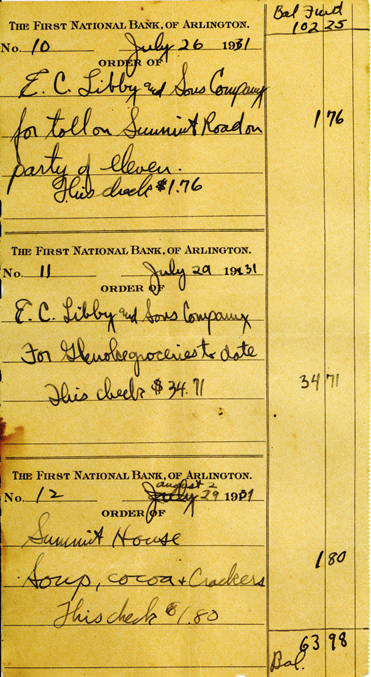 Bal Fwd
102 25
THE FIRST NATIONAL BANK, OF ARLINGTON.
No. 10 July 26 1931
ORDER OF
E. C. Libby and Sons Company
for toll on Summit Road on
1 76
party of eleven.
This check $1.76
THE FIRST NATIONAL BANK, OF ARLINGTON.
No. 11 July 29 1931
ORDER OF
E. C. Libby and Sons Company
For groceries to date
This check $34.71
34 71
THE FIRST NATIONAL BANK, OF ARLINGTON.
august 2
No. 12 July 29 1931
ORDER OF
Summit House
1 80
Soup, cocoa + Crackers
This check $1.80
63 98
Bal.